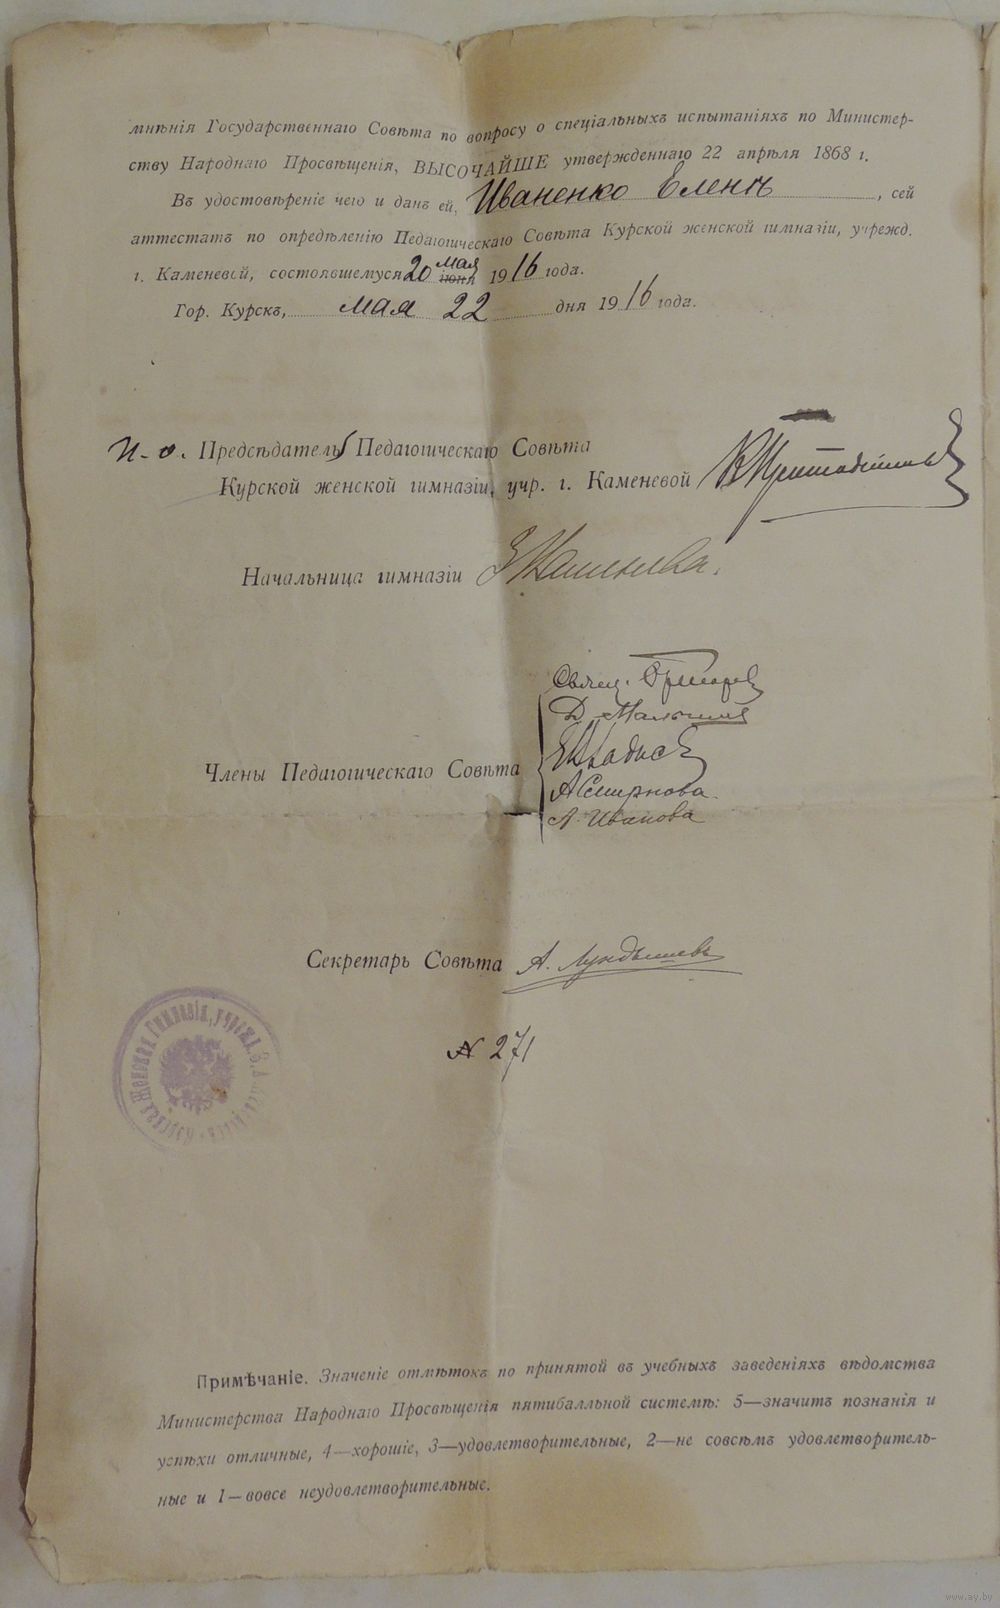 мнѣнія Государственнаго Совѣта по вопросу о спеціальныхъ испытаніяхъ по Министер-
ству Народнаго Просвѣщенія, ВЫСОЧАЙШЕ утвержденнаго 22 апрѣля 1868 г.
Въ удостовѣреніе чего и данъ ей, Иваненко Еленѣ, сей
аттестатъ по опредѣленію Педагогическаго Совѣта Курской женской гимназіи, учрежд.
г. Каменевой, состоявшемуся 20 мая іюня 1916 года.
Гор. Курскъ, мая 22 дня 1916 года.
И. о. Предсѣдателя Педагогическаго Совѣта
Курской женской гимназіи, учр. г. Каменевой
Начальница гимназіи
Свящ.
Д.
Члены Педагогическаго Совѣта
А Смирнова
А. Иванова
Секретарь Совѣта А.
№ 271
Женская Гимназія, учрежд.
Примѣчаніе. Значеніе отмѣтокъ по принятой въ учебныхъ заведеніяхъ вѣдомства
Министерства Народнаго Просвѣщенія пятибалльной системѣ: 5—значитъ познанія и
успѣхи отличные, 4—хорошіе, 3—удовлетворительные, 2—не совсѣмъ удовлетворитель-
ные и 1—вовсе неудовлетворительные.
www.ay.by